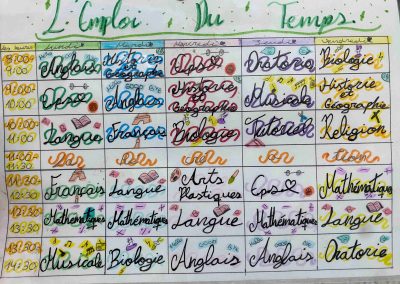 L'Emploi Du Temps
Les heures Lundi Mardi Mercredi Jeudi Vendredi
8:00- 9:00 Anglais Histoire et Géographie Cps Oratorie Biologie
9:00- 10:00 Cps Anglais Histoire et Géographie Musicale Histoire et Géographie
10:00- 11:00 Langue Français Biologie Tutorial Religion
11:30- 12:30 Français Langue Arts Plastiques Cps Mathématique
12:30- 13:30 Mathématiques Mathématiques Langue Mathématiques Langue
13:30- 14:30 Musicale Biologie Anglais Anglais Oratorie